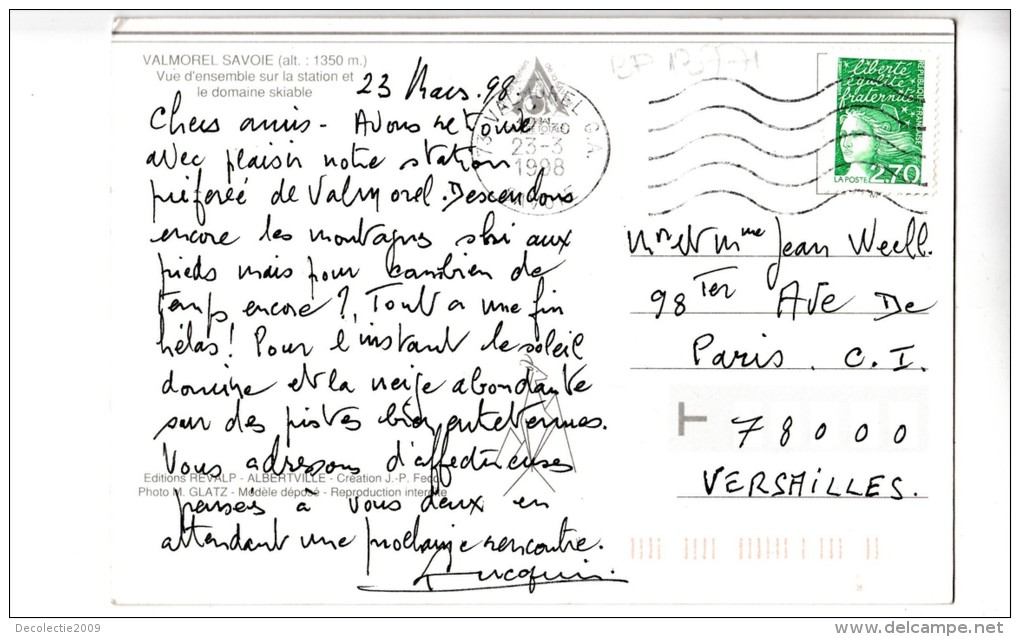 VALMOREL SAVOIE (alt. : 1350 m.)
Vue d'ensemble sur la station et
le domaine skiable
23 Mars. 98.
Chers amis - Avons retrouvé
avec plaisir notre station
préférée de Valmorel. Descendons
encore les montagnes ski aux
pieds mais pour combien de
temps encore ?, Tout a une fin
hélas! Pour l'instant le soleil
domine et la neige abondante
sur des pistes bien entretenues.
Vous adressons d'affectueuses
pensées à vous deux en
attendant une prochaine rencontre.
Editions REVALP - ALBERTVILLE - Création J.-P. Fedo
Photo M. GLATZ - Modèle déposé - Reproduction interdite
73 VALMOREL C.A.
23-3
1998
SAVOIE
liberté
égalité
fraternité
RÉPUBLIQUE FRANÇAISE
LA POSTE 2,70
Mr et Mme Jean Weell.
98 Ter Ave De
Paris. C. I.
78000
VERSAILLES.
Decolectie2009
www.delcampe.net